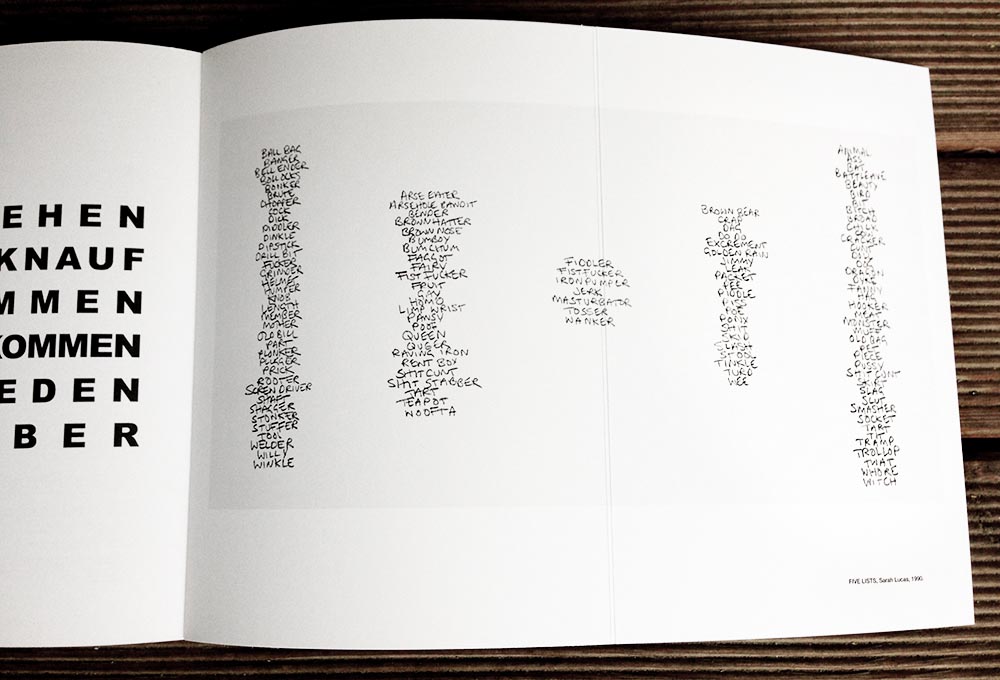 EHEN
KNAUF
MMEN
KOMMEN
EDEN
BER
BALL BAG
BANGER
BELL ENDER
BOLLOCKS
BONKER
BRUTE
CHOPPER
COCK
DICK
DIDDLER
DINKLE
DIPSTICK
DRILL BIT
FUCKER
GRINDER
HELMET
HUMPER
KNOB
LENGTH
MEMBER
MOTHER
OLD BILL
PART
PLONKER
PLUGGER
PRICK
ROOTER
SCREW DRIVER
SHAFT
SHAGGER
STONKER
STUFFER
TOOL
WELDER
WILLY
WINKLE
ARSE EATER
ARSEHOLE BANDIT
BENDER
BROWN HATTER
BROWN NOSE
BUMBOY
BUMCHUM
FAGGOT
FAIRY
FIST FUCKER
FRUIT
GAY
HOMO
LIMP WRIST
PANSY
POOF
QUEEN
QUEER
RAVING IRON
RENT BOY
SHITCUNT
SHIT STABBER
TART
TEAPOT
WOOFTA
FIDDLER
FISTFUCKER
IRONPUMPER
JERK
MASTURBATOR
TOSSER
WANKER
BROWN BEAR
CRAP
DAG
DO DO
EXCREMENT
GOLDEN RAIN
JIMMY
LEAK
PACKET
PEE
PIDDLE
PISS
POE
POOH
SHIT
SKID
SLASH
STOOL
TINKLE
TURD
WEE
ANIMAL
ASS
BAT
BATTLEAXE
BEAUTY
BIRD
BIT
BITCH
BROAD
CHICK
CRACKER
DRAGON
FANNY
HAG
HOOKER
MEAT
MONSTER
MUFF
OLD BAG
PET
PIECE
PUSSY
SHITCUNT
SKIRT
SLAG
SLUT
SMASHER
SOCKET
TART
TIT
TRAMP
TROLLOP
TWAT
WHORE
WITCH
FIVE LISTS, Sarah Lucas, 1990.